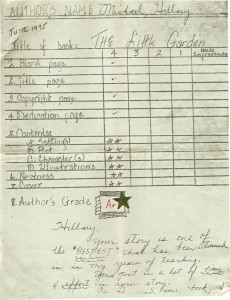 AUTHORS NAME Michael Hillary
JUNE 1995
Title of book: THE Little Garden
4 3 2 1 Needs Improvement
1. Blank page ✓
2. Title page ✓
3. Copyright page ✓
4. Dedication page ✓
5. Contents
A. Setting(s) ★★
B. Plot ★★
C. Character(s) ★★
D. Illustrations ★★
6. Neatness ★★
7. Cover ★★
8. Author's Grade A+
Hillary,
Your story is one of
the "BESTEST" that has been
in in my years of teaching.
You put in a lot of time
& effort in your story.